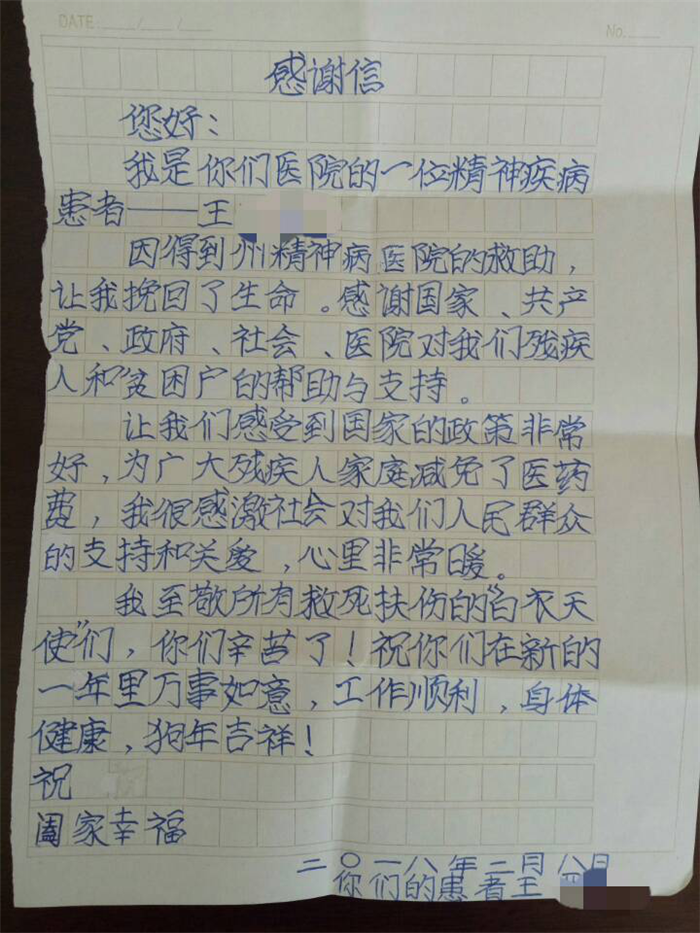 DATE ___/___/___
No.___
感谢信
您好：
我是你们医院的一位精神疾病
患者——王
因得到州精神病医院的救助，
让我挽回了生命。感谢国家、共产
党、政府、社会、医院对我们残疾
人和贫困户的帮助与支持。
让我们感受到国家的政策非常
好，为广大残疾人家庭减免了医药
费，我很感激社会对我们人民群众
的支持和关爱，心里非常暖。
我至敬所有救死扶伤的“白衣天
使”们，你们辛苦了！祝你们在新的
一年里万事如意，工作顺利，身体
健康，狗年吉祥！
祝
阖家幸福
二〇一八年二月八日
你们的患者王